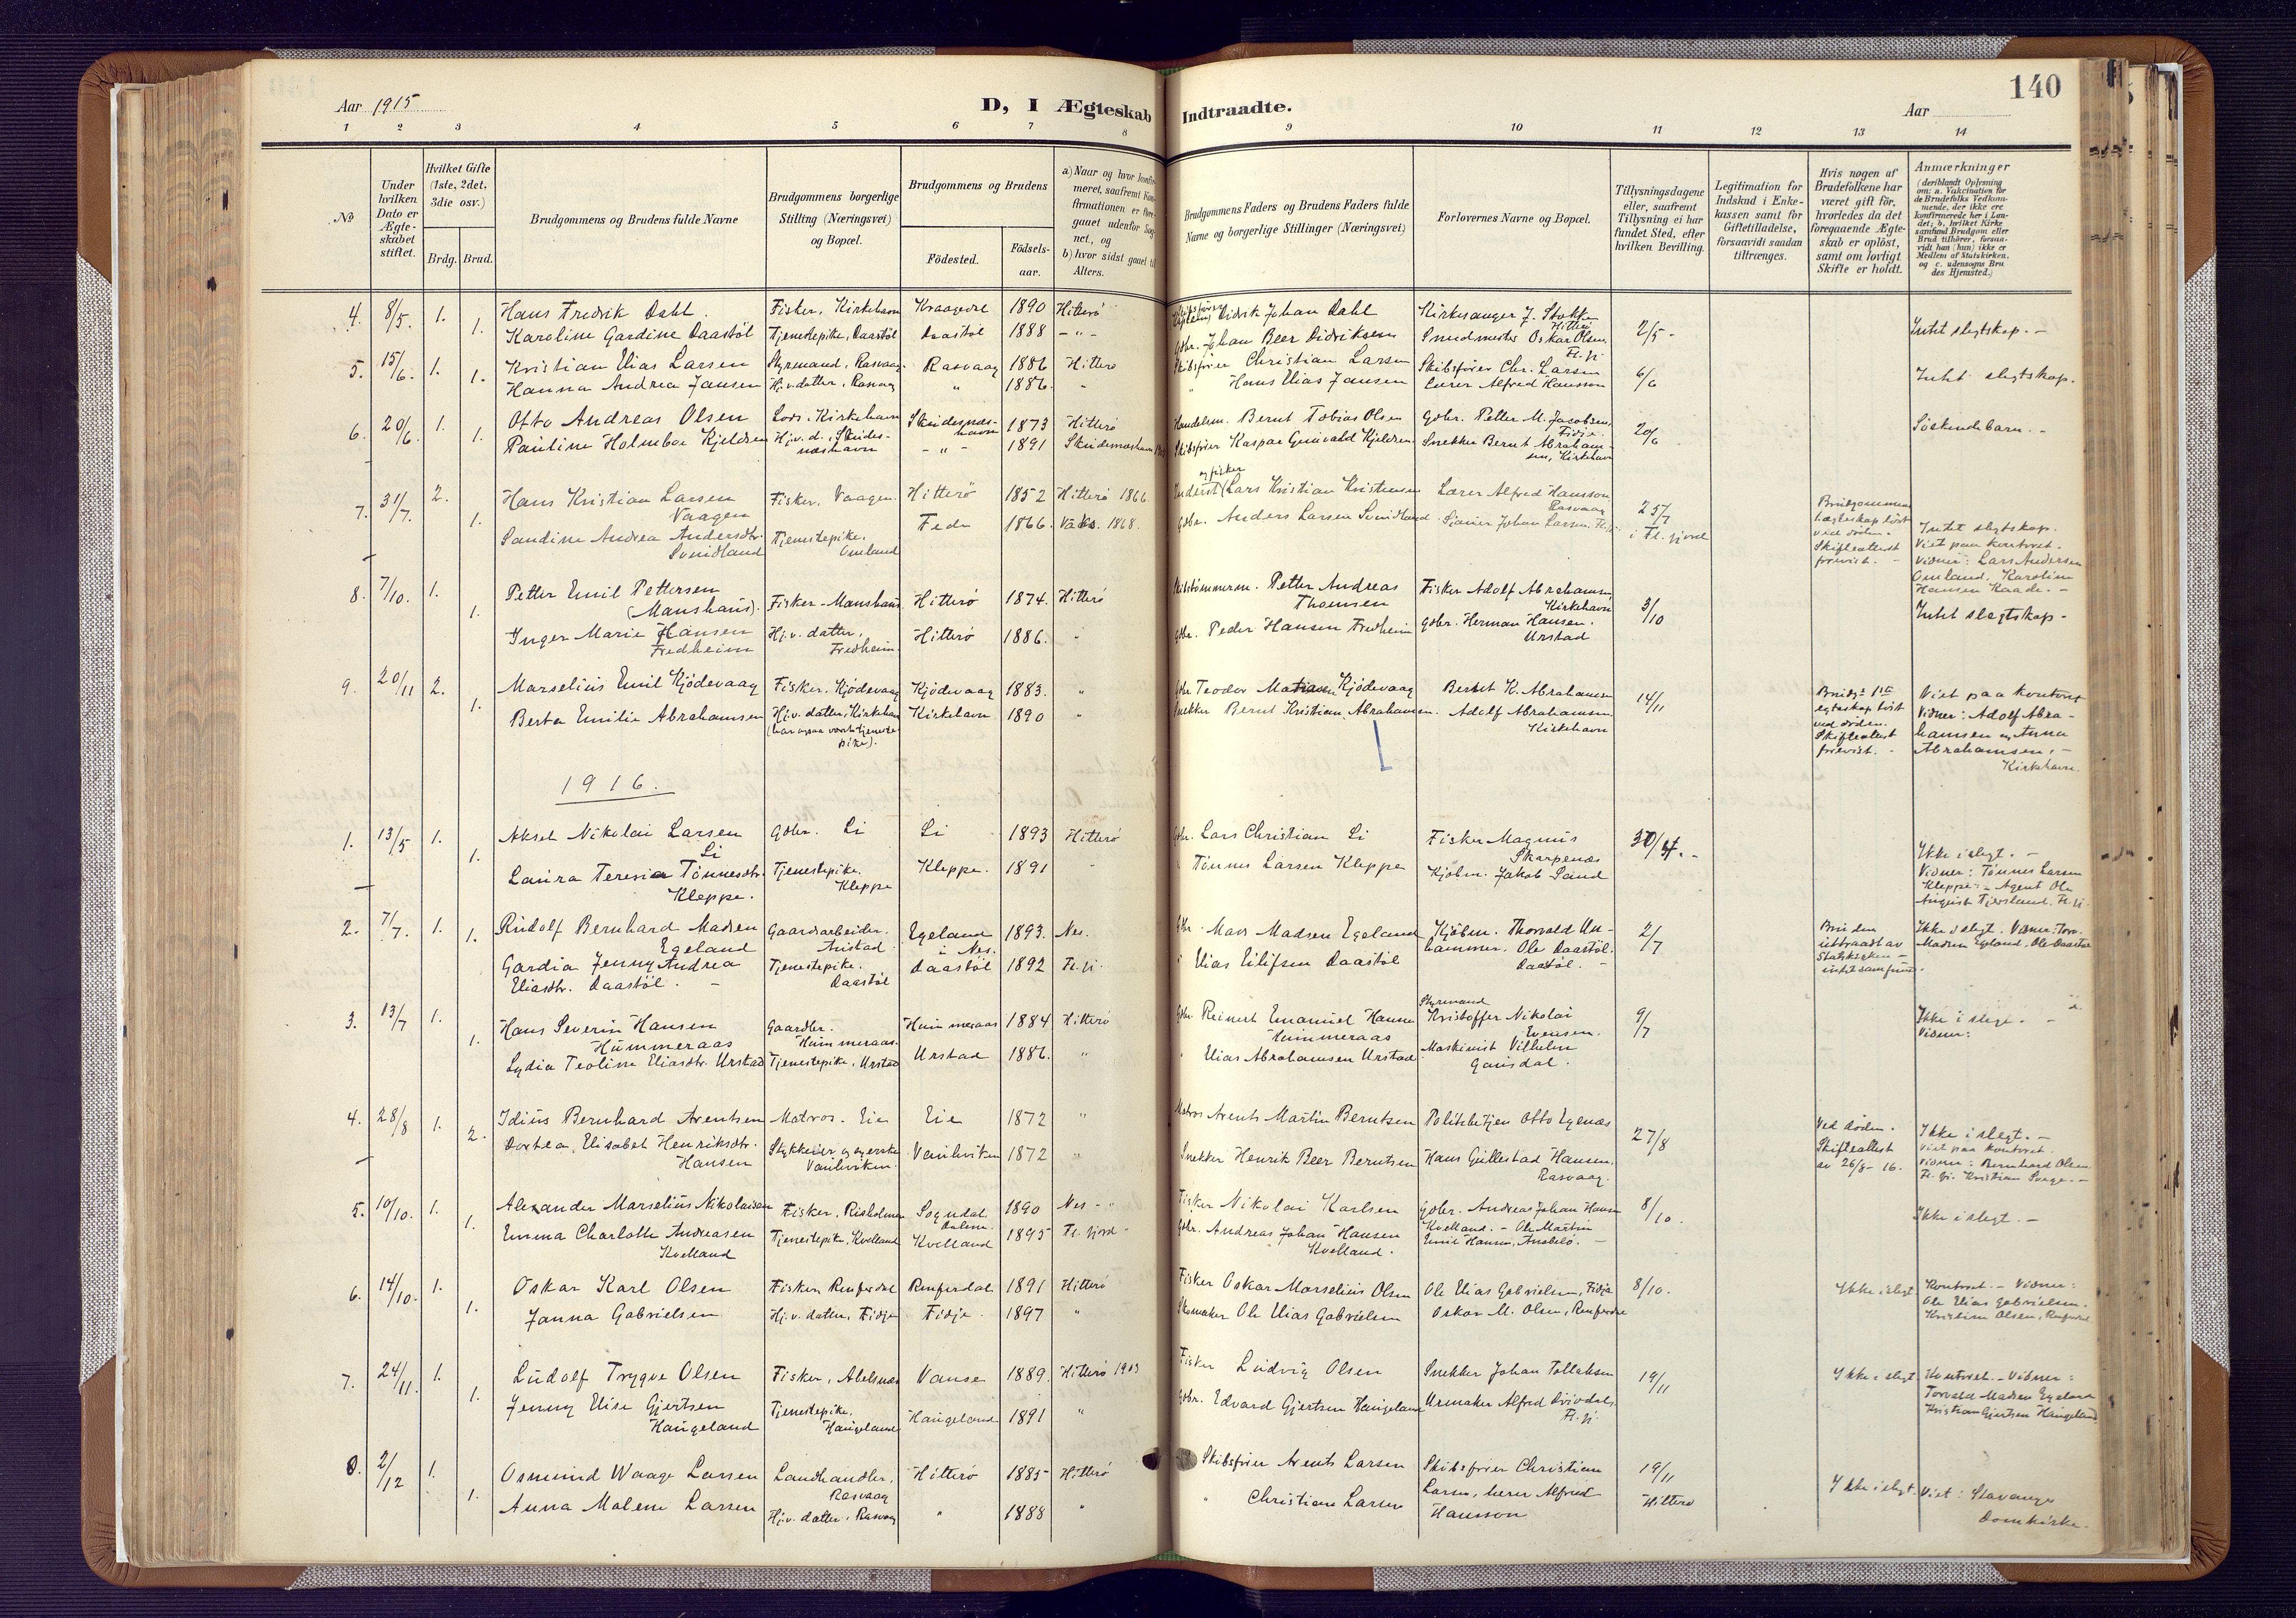 140
Aar 1915
D, I Ægteskab Indtraadte.
Aar
1 2 3 4 5 6 7 8 9 10 11 12 13 14
No
Under hvilken Dato er Ægteskabet stiftet.
Hvilket Gifte (1ste, 2det, 3die osv.)
Brdg. Brud.
Brudgommens og Brudens fulde Navne
Brudgommens borgerlige Stilling (Næringsvei) og Bopæl.
Brudgommens og Brudens
Födested.
Födselsaar.
a) Naar og hvor konfirmeret, saafremt Konfirmationen er foregaaet udenfor Sognet, og
b) hvor sidst gaaet til Alters.
Brudgommens Faders og Brudens Faders fulde Navne og borgerlige Stillinger (Næringsvei)
Forlovernes Navne og Bopæl.
Tillysningsdagene eller, saafremt Tillysning ei har fundet Sted, efter hvilken Bevilling.
Legitimation for Indskud i Enkekassen samt for Giftetilladelse, forsaavidt saadan tiltrænges.
Hvis nogen af Brudefolkene har været gift för, hvorledes da det foregaaende Ægteskab er oplöst, samt om lovligt Skifte er holdt.
Anmærkninger
(deriblandt Oplysning om: a. Vakcination for de Brudefolks Vedkommende, der ikke ere konfirmerede her i Landet; b. hvilket Kirkesamfund Brudgom eller Brud tilhörer, forsaavidt han (hun) ikke er Medlem af Statskirken. og c. udensogns Brudes Hjemsted.)
4. 8/5. 1. Hans Fredrik Dahl. Fisker, Kirkehavn Kraagerø 1890 Hitterø Didrik Johan Dahl Kirkesanger J. Stokke Hitterø 2/5 - Intet slegtskap. -
1. Karoline Gardine Daastöl Tjenestepike, Daastöl Daastöl 1888 - " - Gdbr. Johan Beer Didriksen Smedmester Oskar Olsen, Fl. fj.
5. 15/6. 1. Kristian Elias Larsen Styrmand, Rasvaag. Rasvaag 1886 Hitterø Skibsfører Christian Larsen Skibsfører Chr. Larsen 6/6 Intet slegtskap.
1. Hanna Andrea Jansen Hj.v. datter, Rasvaag " 1886. " " Hans Elias Jansen Lærer Alfred Hansson
6. 20/6. 1. Otto Andreas Olsen Lods. Kirkehavn Skudesneshavn 1873 Hitterø Handelsm. Bernt Tobias Olsen Gdbr. Petter M. Jacobsen, Fidje. 20/6 Söskendebarn. -
1. Pauline Holmboe Kjeldsen Hj.v. d. Skudesneshavn - " - 1891 Skudesneshavn Skibsfører Kaspar Grunvald Kjeldsen Snekker Bernt Abrahamsen, Kirkehavn
7. 31/7. 2. Hans Kristian Larsen Vaagen Fisker, Vaagen. Hitterö 1852 Hitterø 1866. Inderst og fisker Lars Kristian Kristensen Lærer Alfred Hansson Rasvaag 25/7 i Fl. fjord Brudgommens ægteskap löst ved döden. Skifteattest forevist. -
1. Sandine Andrea Andersdtr. Svindland Tjenestepike. Omland Feda 1866. Vaks. 1868. Gdbr. Anders Larsen Svindland Johan Larsen, Fl. fj. Intet slegtskap. Viet paa kontoret. Vidner: Lars Andersen Omland, Karoline Hansen Raade. -
8. 7/10. 1. Petter Emil Pettersen (Manshaus). Fisker - Manshaus Hitterø 1874. Hitterø Skibstømmerm. Petter Andreas Thomsen Fisker Adolf Abrahamsen, Kirkehavn 3/10 Intet slegtskap -
1. Inger Marie Hansen Fredheim Hj.v. datter, Fredheim. Hitterö 1886. " Gdbr. Peder Hansen Fredheim Gdbr. Herman Hansen. Urstad
9. 20/11 2. Marselius Emil Kjödevaag Fisker. Kjödevaag Kjödevaag 1883. " Gdbr. Teodor Matiasen Kjödevaag Berent K. Abrahamsen 14/11 Brudgs 1ste egteskap löst ved döden. Skifteattest forevist. - Viet paa kontoret Vidner: Adolf Abrahamsen og Anna Abrahamsen. - Kirkehavn.
1. Berta Emilie Abrahamsen Hj.v. datter, Kirkehavn (har ogsaa været tjenestepike). Kirkehavn 1890 " Snekker Bernt Kristian Abrahamsen. Adolf Abrahamsen Kirkehavn
1916.
1. 13/5 1. Aksel Nikolai Larsen Li Gdbr. Li Li 1893 Hitterø Gdbr. Lars Christian Li Fisker Magnus Skarpenæs 30/4. - Ikke i slegt. - Vidner: Tønnes Larsen Kleppe - Agent Ole August Tjersland. Fl. fj.
1. Laura Teresia Tönnesdtr. Kleppe. Tjenestepike. Kleppe Kleppe. 1891 " Tönnes Larsen Kleppe Kjöbm. Jakob Sand
2. 7/7. 1. Rudolf Bernhard Madsen Egeland Gaardsarbeider. Anstad Egeland i Nes. 1893. Nes. Gdbr. Mads Madsen Egeland Kjöbm. Thorvald Unhammer. Ole Daastöl. Daastöl. - 2/7 Bruden uttraadt av Statskirken - intet samfund. Ikke i slegt. Vidner: Torv. Madsen Egeland, Ole Daastöl
1. Gardia Jenny Andrea Eliasdtr. Daastöl. - Tjenestepike. Daastöl Daastöl 1892 Fl. fj. " Elias Eilifsen Daastöl
3. 13/7 1. Hans Severin Hansen Hummeraas Gaardbr. Hummeraas. Hummeraas 1884 Hitterø Gdbr. Reinert Emanuel Hansen Hummeraas Styrmand Kristoffer Nikolai Evensen. 9/7 Ikke i slegt. - Vidner:
1. Lydia Teoline Eliasdtr. Urstad Tjenestepike, Urstad Urstad 1886. " " Elias Abrahamsen Urstad Maskinist Vilhelm Gausdal.
4. 28/8 1. Idius Bernhard Arentsen Matros. Eie Eie 1872 " Matros Arents Martin Berntsen Politibetjen Otto Egenæs 27/8 Ved döden. Skifteattest av 26/8 - 16. Ikke i slegt. - Viet paa kontoret. Vidner: Bernhard Olsen Fl. fj. Kristian Svege. -
2. Dortea Elisabet Henriksdtr. Hansen Vanlviken. 1872 " Snekker Henrik Beer Berntsen Hans Gullestad Hansen. Rasvaag.
5. 10/10. 1. Alexander Marselius Nikolaisen Fisker. Risholmen Sogndal Dalene. 1890 Nes - Fisker Nikolai Karlsen Gdbr. Andreas Johan Hansen Kvelland. - Ole Martin Emil Hansen, Anabelö. - 8/10. Ikke i slegt. -
1. Emma Charlotte Andreasen Kvelland Tjenestepike, Kvelland Kvelland 1895 Fl. fjord - Gdbr. Andreas Johan Hansen Kvelland.
6. 14/10. 1. Oskar Karl Olsen Fisker, Renferdal Renferdal 1891 Hitterø Fisker Oskar Marselius Olsen Ole Elias Gabrielsen, Fidje 8/10. Ikke i slegt Kontoret. - Vidner: Ole Elias Gabrielsen. Kristine Olsen, Renferdal
1. Janna Gabrielsen Hj.v. datter, Fidje Fidje. 1897 " Skomaker Ole Elias Gabrielsen Oskar M. Olsen, Renferdal
7. 24/11. 1. Ludolf Trygve Olsen Fisker, Abelsnæs Vanse 1889. Hitterø 1903 Fisker Ludvig Olsen Snekker Johan Tollaksen 19/11 Ikke i slegt Kontoret. - Vidner: Torvald Madsen Egeland Kristian Gjertsen Haugeland
1. Jenny Elise Gjertsen Haugeland Tjenestepike, Haugeland Haugeland 1891 " Gdbr. Edvard Gjertsen Haugeland Urmaker Alfred Dvivdal. Fl. fj.
8. 2/12 1. Osmund Waage Larsen Landhandler, Rasvaag Hitterø 1885 Hitterø Skibsfører Arents Larsen Skibsfører Christian Larsen, lærer Alfred Hansson 19/11 Hitterø Ikke i slegt. Viet: Stavanger Domkirke.
1. Anna Malene Larsen Hj.v. datter, Rasvaag " 1888 " " Christian Larsen